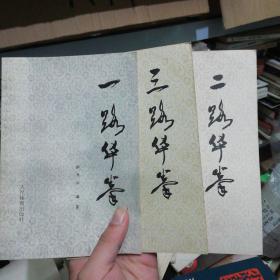 一路华拳
三路华拳
二路华拳
人民体育出版社